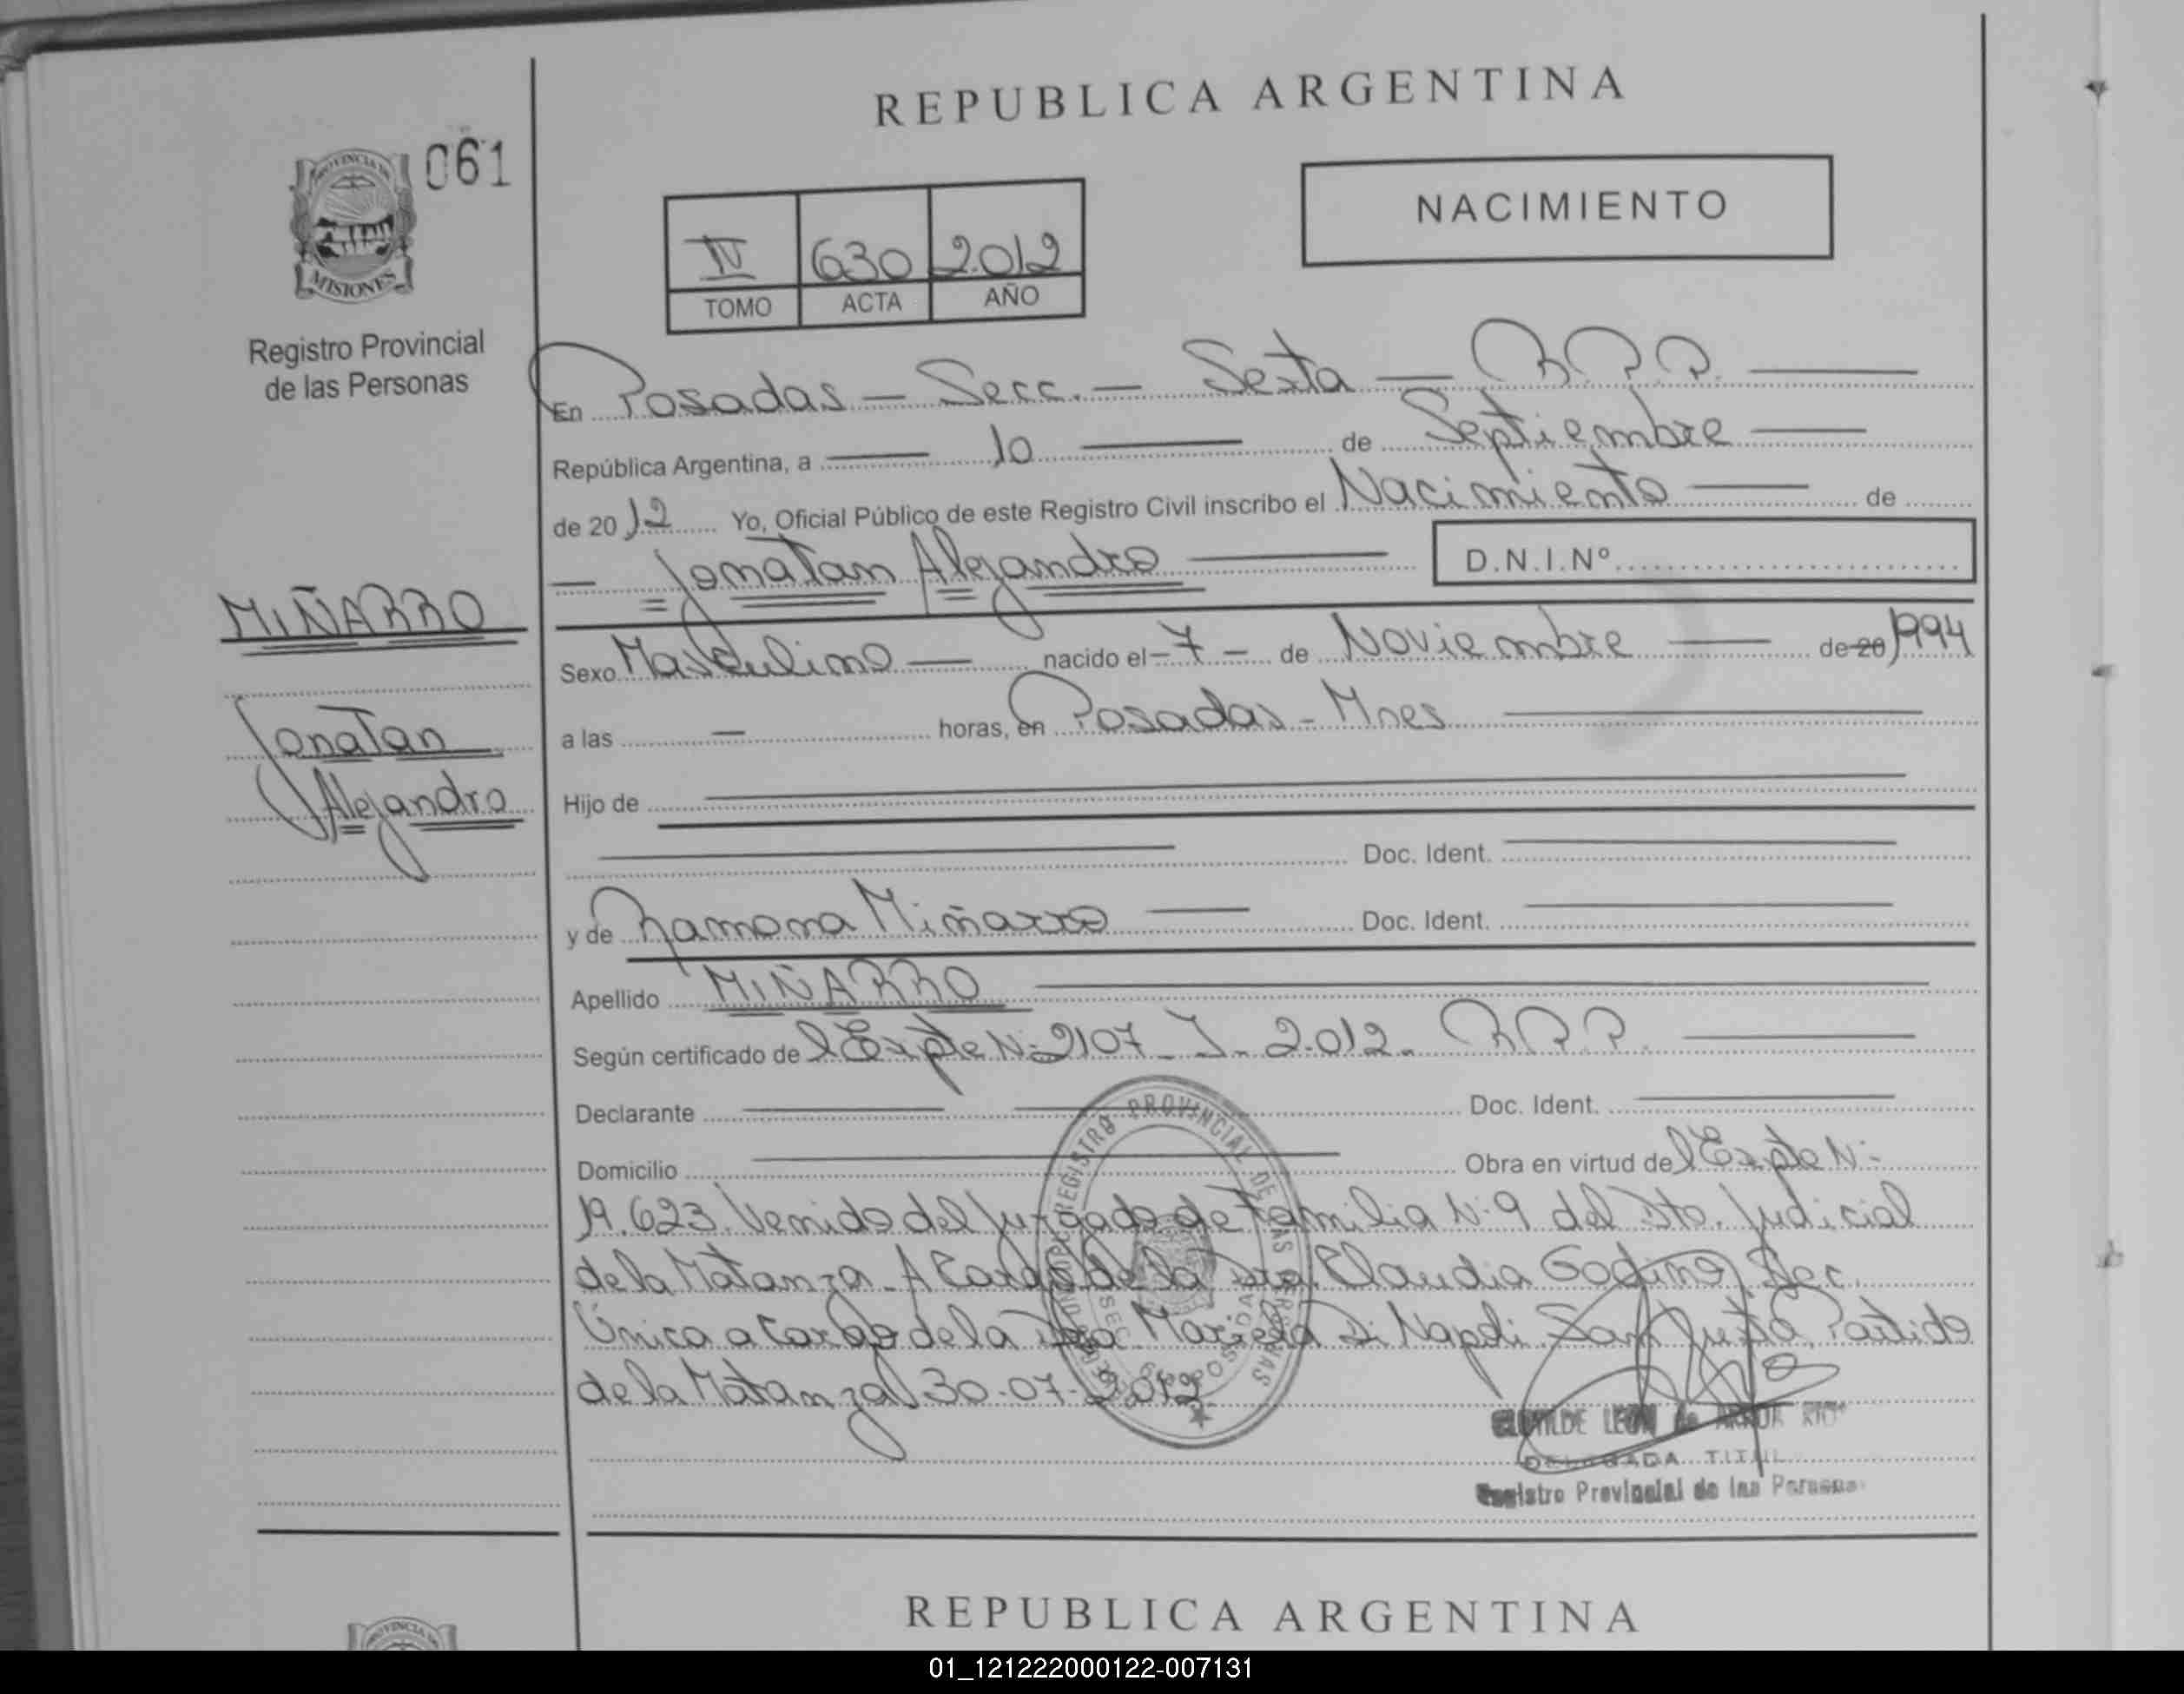 REPUBLICA ARGENTINA
PROVINCIA DE
MISIONES
061
NACIMIENTO
IV 630 2.012
TOMO ACTA AÑO
Registro Provincial
de las Personas
En Posadas - Secc. - Sexta - R.P.P.
República Argentina, a 10 de Septiembre
de 2012 Yo, Oficial Público de este Registro Civil inscribo el Nacimiento de
Jonatan Alejandro D.N.I.Nº
MIÑARRO
Jonatan
Alejandro
Sexo Masculino nacido el - 7 - de Noviembre de 20 1994
a las — horas, en Posadas - Mnes
Hijo de
Doc. Ident.
y de Ramona Miñarro Doc. Ident.
Apellido MIÑARRO
Según certificado del Expte N: 2107 - J - 2.012. R.P.P.
Declarante Doc. Ident.
Domicilio Obra en virtud del Expte N:
19.623. Venido del Juzgado de Familia N: 9 del Dto. Judicial
de la Matanza - A Cargo de la Dra. Claudia Godino, Sec.
Única a Cargo de la Dra Mariela Di Napoli San Justo Partido
de la Matanza 30-07-2.012
REGISTRO PROVINCIAL DE LAS PERSONAS
CLOTILDE LEON de
DELEGADA TITUL
Registro Provincial de las Personas
REPUBLICA ARGENTINA
PROVINCIA DE
01_121222000122-007131